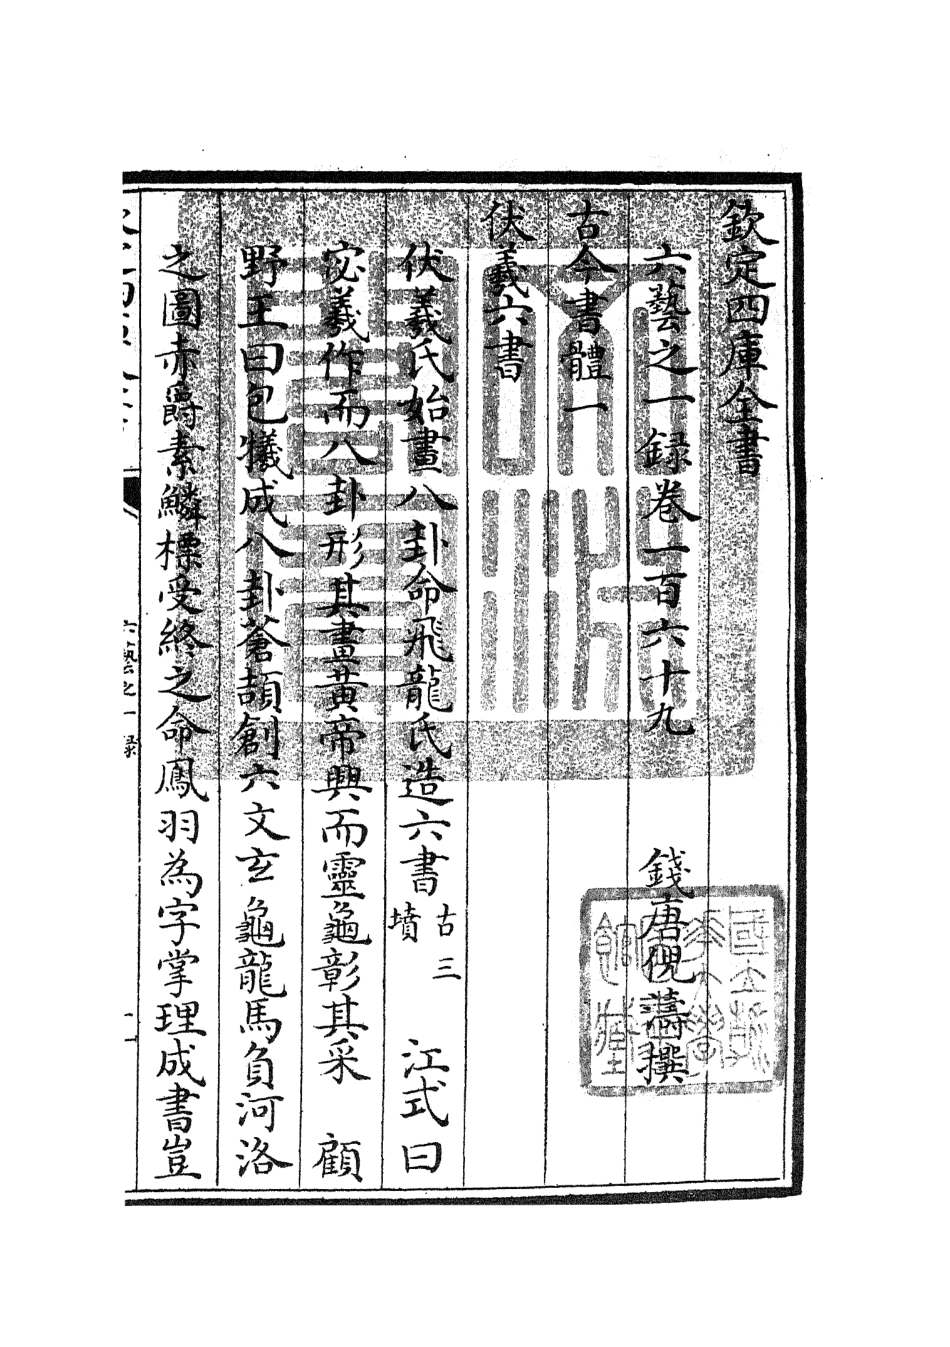 欽定四庫全書
六藝之一録卷一百六十九
錢唐倪濤撰
古今書體一
伏羲六書
伏羲氏始畫八卦命飛龍氏造六書古三墳 江式曰
宓羲作而八卦形其畫黃帝興而靈龜彰其采 顧
野王曰包犧成八卦蒼頡創六文玄龜龍馬負河洛
之圖赤爵素鱗標受終之命鳳羽為字掌理成書豈
六藝之一録